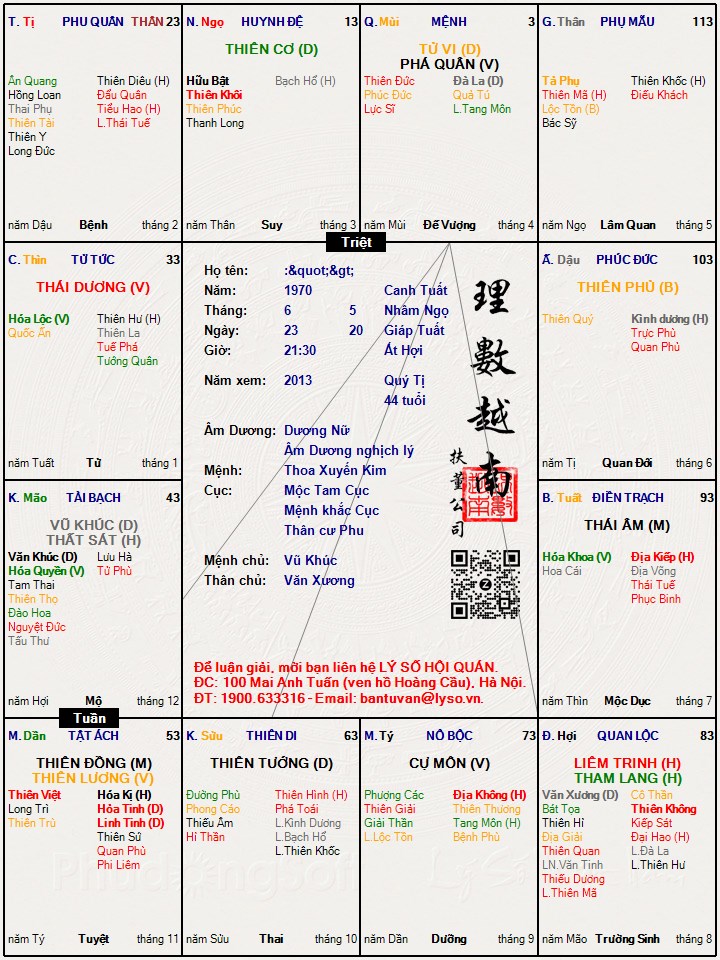 T. Tị PHU QUÂN THÂN 23
Ân Quang Thiên Diêu (H)
Hồng Loan Đẩu Quân
Thai Phụ Tiểu Hao (H)
Thiên Tài L.Thái Tuế
Thiên Y
Long Đức
năm Dậu Bệnh tháng 2
N. Ngọ HUYNH ĐỆ 13
THIÊN CƠ (D)
Hữu Bật Bạch Hổ (H)
Thiên Khôi
Thiên Phúc
Thanh Long
năm Thân Suy tháng 3
Q. Mùi MỆNH 3
TỬ VI (D)
PHÁ QUÂN (V)
Thiên Đức Đà La (D)
Phúc Đức Quả Tú
Lực Sĩ L.Tang Môn
năm Mùi Đế Vượng tháng 4
G. Thân PHỤ MẪU 113
Tả Phụ Thiên Khốc (H)
Thiên Mã (H) Điếu Khách
Lộc Tồn (B)
Bác Sỹ
năm Ngọ Lâm Quan tháng 5
Triệt
C. Thìn TỬ TỨC 33
THÁI DƯƠNG (V)
Hóa Lộc (V) Thiên Hư (H)
Quốc Ấn Thiên La
Tuế Phá
Tướng Quân
năm Tuất Tử tháng 1
Họ tên: :&quot;&gt;
Năm: 1970 Canh Tuất
Tháng: 6 5 Nhâm Ngọ
Ngày: 23 20 Giáp Tuất
Giờ: 21:30 Ất Hợi
Năm xem: 2013 Quý Tị
44 tuổi
Âm Dương: Dương Nữ
Âm Dương nghịch lý
Mệnh: Thoa Xuyến Kim
Cục: Mộc Tam Cục
Mệnh khắc Cục
Thân cư Phu
Mệnh chủ: Vũ Khúc
Thân chủ: Văn Xương
理數越南
扶董公司
Để luận giải, mời bạn liên hệ LÝ SỐ HỘI QUÁN.
ĐC: 100 Mai Anh Tuấn (ven hồ Hoàng Cầu), Hà Nội.
ĐT: 1900.633316 - Email: bantuvan@lyso.vn.
Ấ. Dậu PHÚC ĐỨC 103
THIÊN PHỦ (B)
Thiên Quý Kình dương (H)
Trực Phù
Quan Phủ
năm Tị Quan Đới tháng 6
K. Mão TÀI BẠCH 43
VŨ KHÚC (D)
THẤT SÁT (H)
Văn Khúc (D) Lưu Hà
Hóa Quyền (V) Tử Phù
Tam Thai
Thiên Thọ
Đào Hoa
Nguyệt Đức
Tấu Thư
năm Hợi Mộ tháng 12
B. Tuất ĐIỀN TRẠCH 93
THÁI ÂM (M)
Hóa Khoa (V) Địa Kiếp (H)
Hoa Cái Địa Võng
Thái Tuế
Phục Binh
năm Thìn Mộc Dục tháng 7
Tuần
M. Dần TẬT ÁCH 53
THIÊN ĐỒNG (M)
THIÊN LƯƠNG (V)
Thiên Việt Hóa Kị (H)
Long Trì Hỏa Tinh (D)
Thiên Trù Linh Tinh (D)
Thiên Sứ
Quan Phù
Phi Liêm
năm Tý Tuyệt tháng 11
K. Sửu THIÊN DI 63
THIÊN TƯỚNG (D)
Đường Phù Thiên Hình (H)
Phong Cáo Phá Toái
Thiếu Âm L.Kình Dương
Hỉ Thần L.Bạch Hổ
L.Thiên Khốc
năm Sửu Thai tháng 10
M. Tý NÔ BỘC 73
CỰ MÔN (V)
Phượng Các Địa Không (H)
Thiên Giải Thiên Thương
Giải Thần Tang Môn (H)
L.Lộc Tồn Bệnh Phù
năm Dần Dưỡng tháng 9
Đ. Hợi QUAN LỘC 83
LIÊM TRINH (H)
THAM LANG (H)
Văn Xương (D) Cô Thần
Bát Tọa Thiên Không
Thiên Hỉ Kiếp Sát
Địa Giải Đại Hao (H)
Thiên Quan L.Đà La
LN.Văn Tinh L.Thiên Hư
Thiếu Dương
L.Thiên Mã
năm Mão Trường Sinh tháng 8